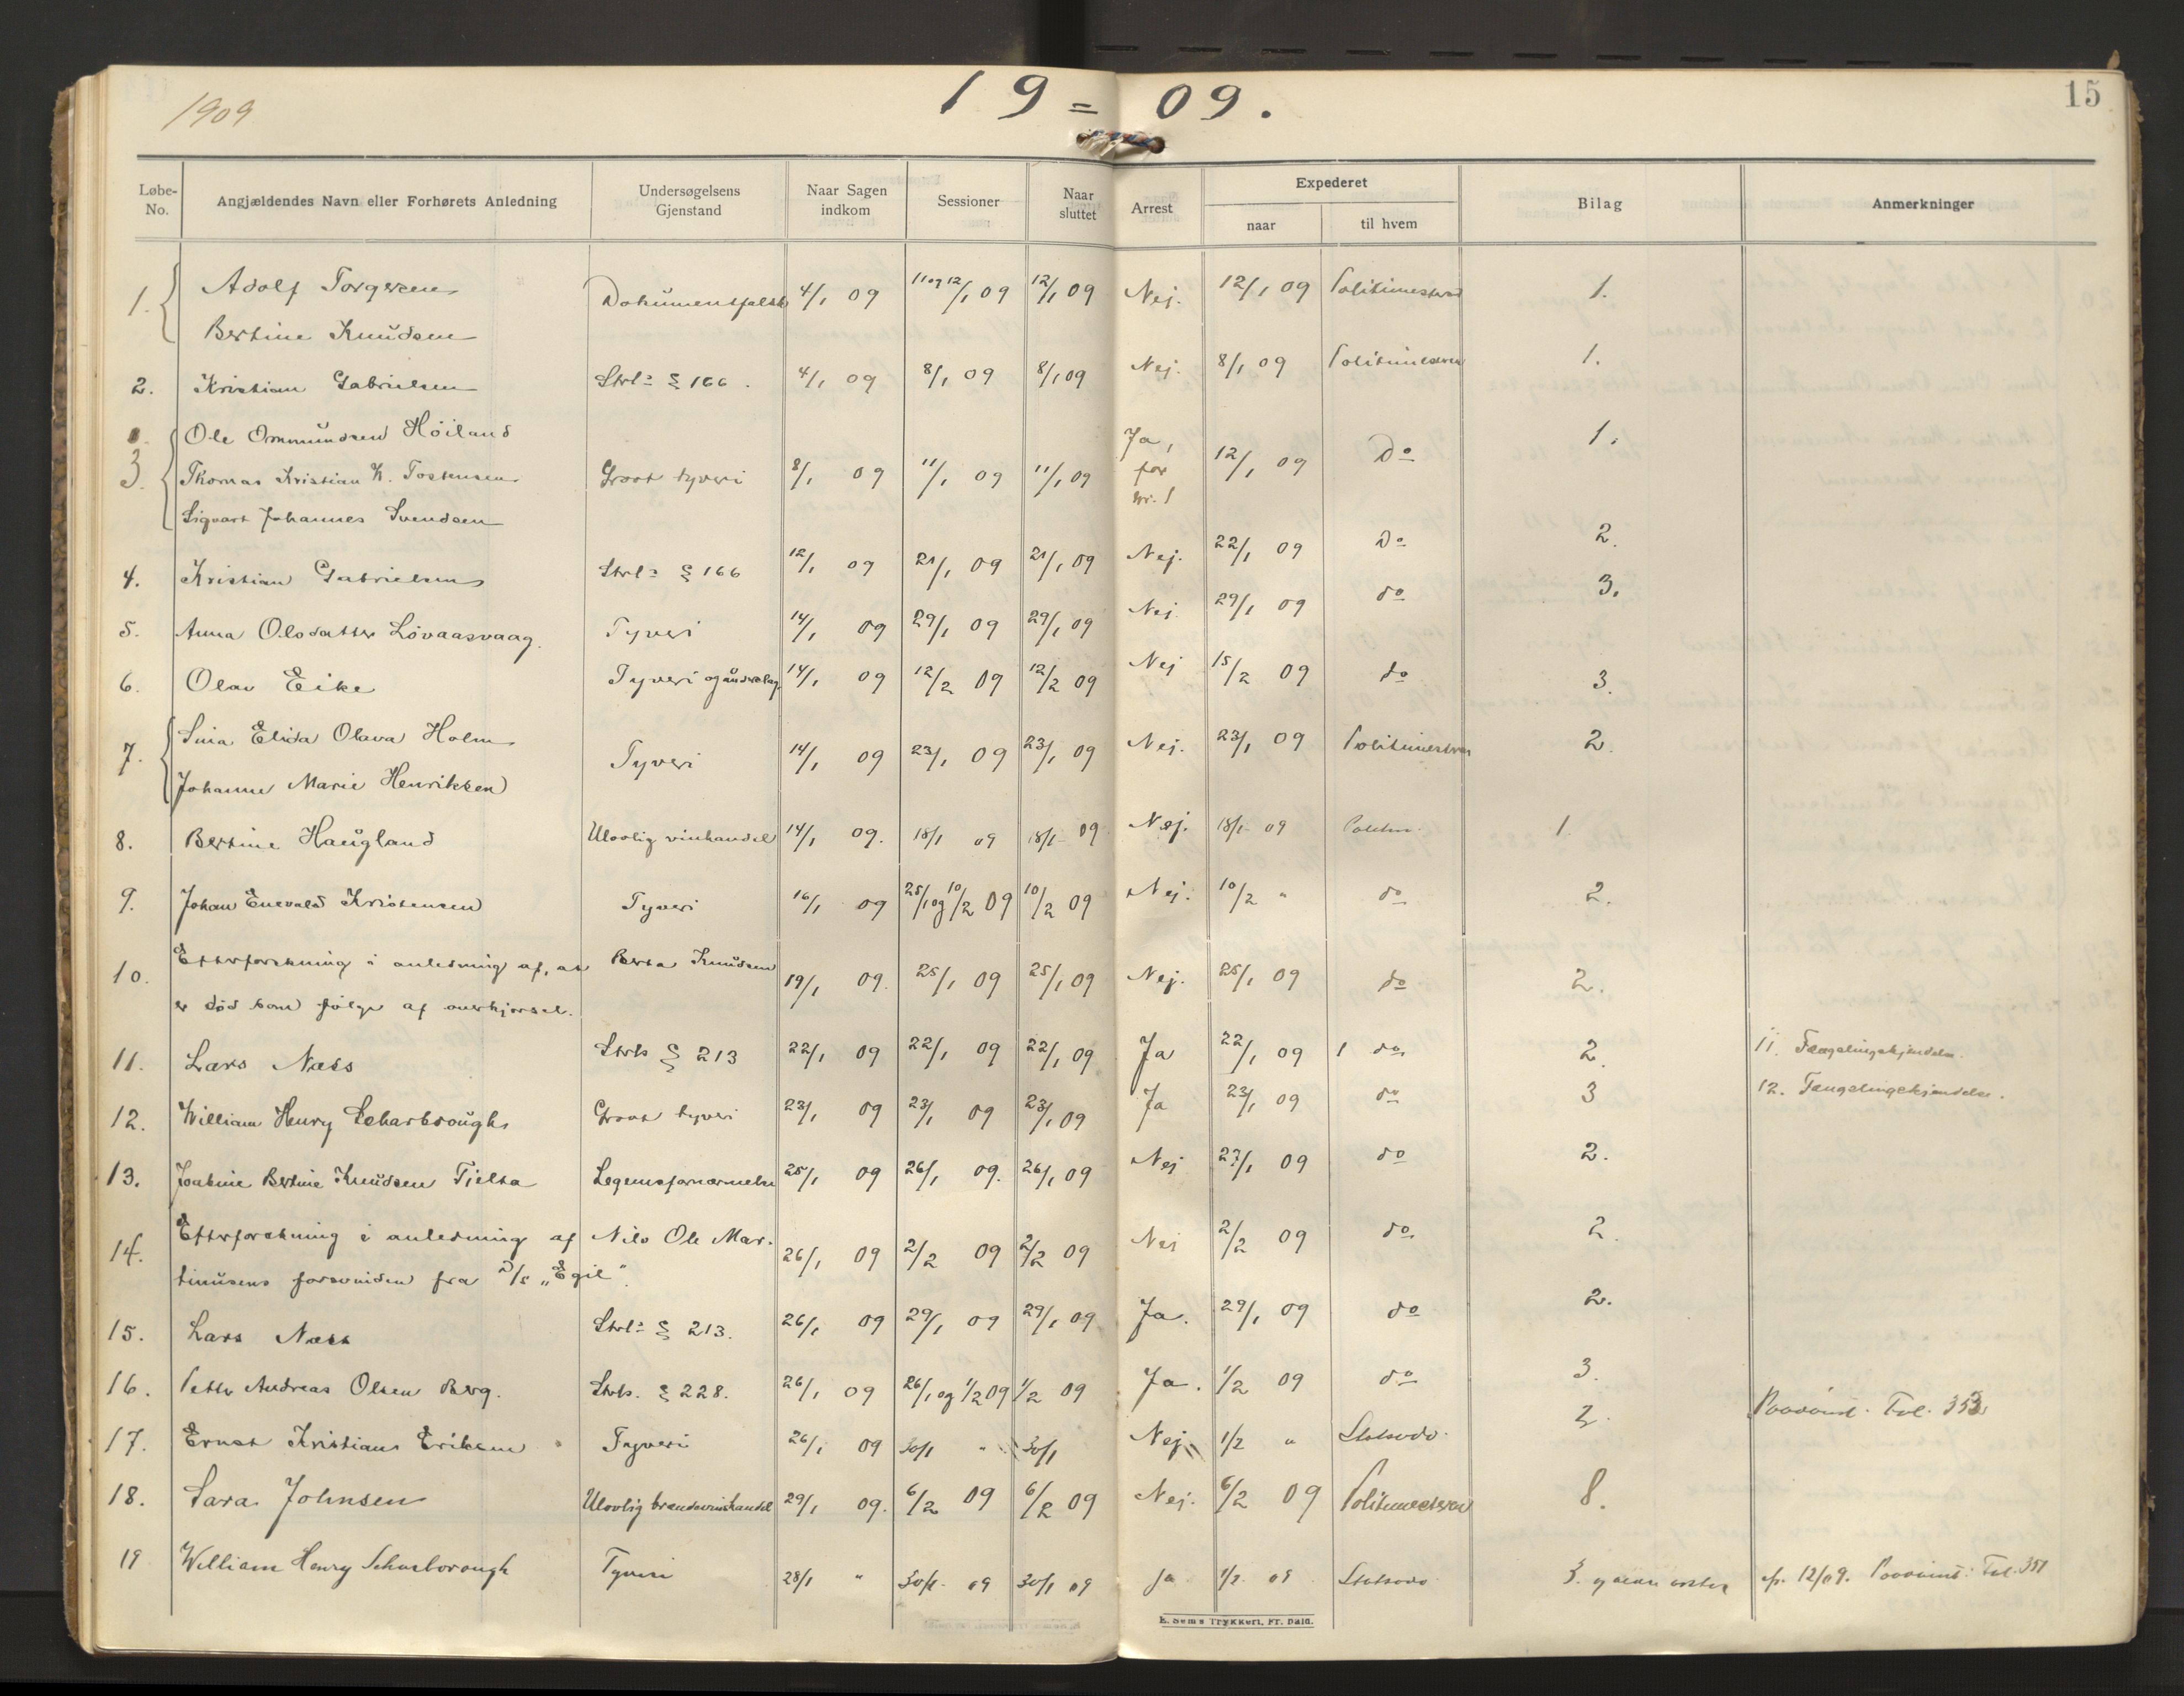 1909
19 = 09.
15
Løbe-No. Angjældendes Navn eller Forhørets Anledning Undersøgelsens Gjenstand Naar Sagen indkom Sessioner Naar sluttet Arrest Expederet naar til hvem Bilag Anmerkninger
1. Adolf Torgersen Dokumentfalsk 4/1 09 11 og 12/1 09 12/1 09 Nej. 12/1 09 Politimesteren 1.
Bertine Knudsen
2. Kristian Gabrielsen Strl: § 166. 4/1 09 8/1 09 8/1 09 Nej. 8/1 09 Politimesteren 1.
3. Ole Ommundsen Höiland
Thomas Kristian K. Tostensen Grovt tyveri 8/1 09 11/1 09 11/1 09 Ja, for nr. 1 12/1 09 Do 1.
Sigvart Johannes Svendsen
4. Kristian Gabrielsen Strl: § 166 12/1 09 21/1 09 21/1 09 Nej. 22/1 09 Do 2.
5. Anna Olsdatter Lövaasvaag. Tyveri 14/1 09 29/1 09 29/1 09 Nej. 29/1 09 do 3.
6. Olav Eike Tyveri og underslag 14/1 09 12/2 09 12/2 09 Nej 15/2 09 do 3.
7. Sina Elida Olava Holm Tyveri 14/1 09 23/1 09 23/1 09 Nej. 23/1 09 Politimesteren 2.
Johanne Marie Henriksen
8. Bertine Haugland Ulovlig vinhandel 14/1 09. 18/1 09 18/1 09 Nej. 18/1 09 Politim. 1.
9. Johan Enevald Kristensen Tyveri 16/1 09 25/1 og 10/2 09 10/2 09 Nej. 10/2 " do 2.
10. Efterforskning i anledning af, at Berta Knudsen 19/1 09. 25/1 09 25/1 09 Nej. 25/1 09 do 2.
er död som fölge af overkjörsel.
11. Lars Næss Strl: § 213 22/1 09 22/1 09 22/1 09 Ja 22/1 09 do 2. 11. Fængslingskjendelse.
12. William Henry Scharbrough Grovt tyveri 23/1 09 23/1 09 23/1 09 Ja 23/1 09 do 3 12. Fængslingskjendelse.
13. Joakine Bertine Knudsen Tjelta Legemsfornærmelse 25/1 09 26/1 09. 26/1 09 Nej 27/1 09 do 2.
14. Efterforskning i anledning af Nils Ole Mar- 26/1 09 2/2 09 2/2 09 Nei 2/2 09 do 2.
tinusens forsvinden fra D/S „Egil".
15. Lars Næss Strl: § 213. 26/1 09 29/1 09 29/1 09 Ja. 29/1 09 do 2.
16. Petter Andreas Olsen Berg. Strl. § 228. 26/1 09 26/1 og 1/2 09 1/2 09 Ja. 1/2 09 do 3.
17. Ernst Kristian Eriksen Tyveri 26/1 09 30/1 " 30/1 Nej 1/2 " Statsadv. 2. Fol. 353
18. Sara Johnsen Ulovlig brændevinshandel 29/1 09. 6/2 09 6/2 09 Nej. 6/2 09 Politimesteren 8.
19 William Henry Scharborough Tyveri 28/1 " 30/1 09 30/1 09 Ja 1/2 09 Statsadv. 3. 12/09. Fol. 351
E. Sems Trykkeri, Fr. hald.